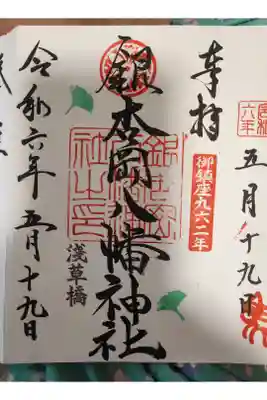 六年
五月十九日
奉拝
御鎮座九六二年
銀杏岡八幡神社
浅草橋
令和六年五月十九日